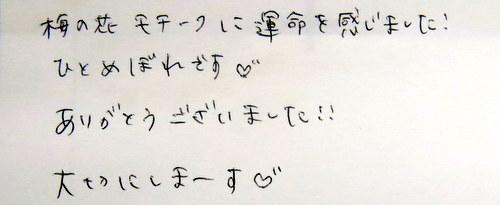 梅の花モチーフに運命を感じました!
ひとめぼれです♡
ありがとうございました!!
大切にしまーす♡